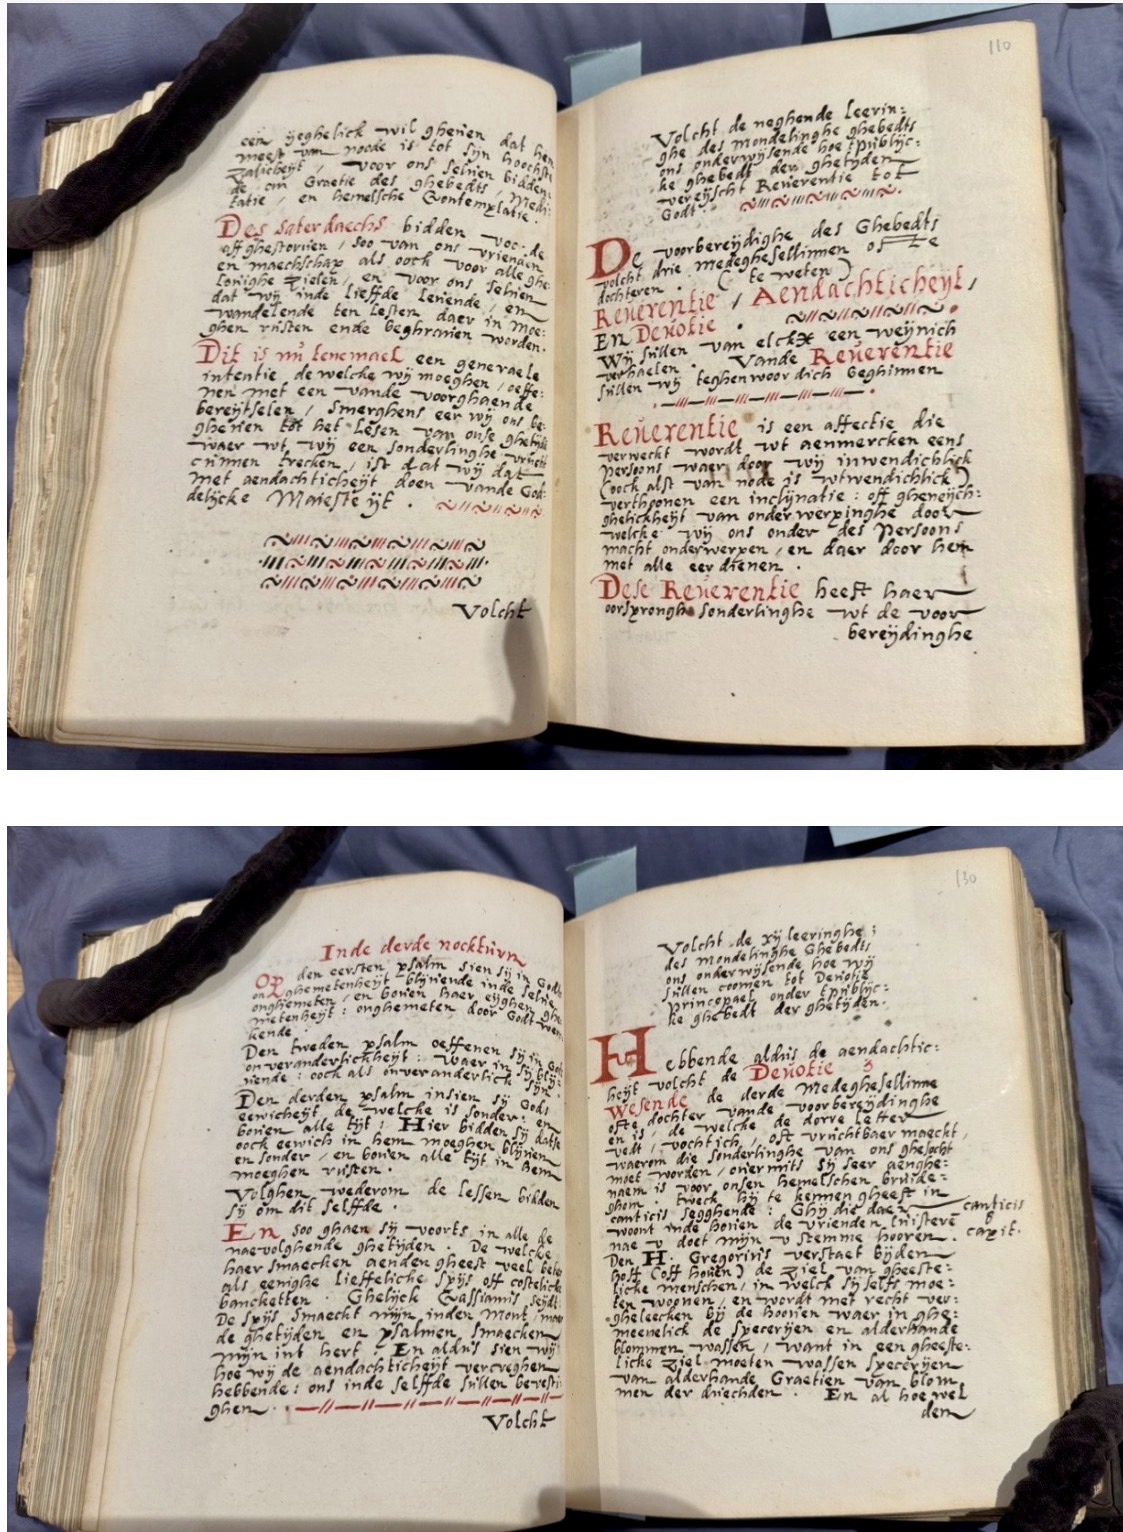 een yeghelick wil gheuen dat hem
meest van noode is tot sijn hoochste
zalicheyt, voor ons seluen bidden
de om Graetie des ghebedts, Medi:
tatie, en hemelsche Contemplatie.
Des saterdaechs bidden voor de
affghestoruen, soo van ons vrienden
en maechschap als oock voor alle ghe
lonighe zielen, en voor ons seluen
dat wij inde lieffde leuende, en
wandelende ten lesten daer in moe:
ghen rusten ende beghrauen worden.
Dit is nu tenemael een generaele
intentie de welcke wij moeghen oeffe:
nen met een vande voorghaende
bereijtselen, smerghens eer wij ons be:
gheuen tot het lesen van onse ghetijde
waer wt wij een sonderlinghe vrucht
cunnen trecken, ist dat wij dat
met aendachticheijt doen vande God:
delijcke Maiesteijt.
Volcht
110
Volcht de neghende leerin:
ghe des mondelinghe ghebedts
ons onderwijsende hoe tpublijc:
ke ghebedt der ghetijden
vereijscht Reuerentie tot
Godt.
De voorbereijdighe des Ghebedts
volcht drie medeghesellinnen ofte
dochteren. (te weten)
Reuerentie, Aendachticheyt,
En Deuotie.
Wij sullen van elckx een weynich
verhaelen. Vande Reuerentie
sullen wij teghenwoordich beghinnen
Reuerentie is een affectie die
verweckt wordt wt aenmercken eens
Persoons waer door wij inwendichlick
(oock alst van node is wtwendichlick)
verthonen een inclijnatie: off gheneijch:
ghelickheijt van onderwerpinghe door
welcke wij ons onder des Persoons
macht onderwerpen, en daer door hem
met alle eer dienen.
Dese Reuerentie heeft haer
oorspronghe sonderlinghe wt de voor
bereijdinghe
Inde derde nockturn
Op den eersten psalm sien sij in Godts
onghemetenheijt blijuende inde selue
onghemeten, en bouen haer eyghen ghe
metenheijt: onghemeten door Godt wer
kende.
Den tweden psalm oeffenen sij in Godts
onveranderlickheijt: Waer in sij blij:
uende: oock als onveranderlick sijn.
Den derden psalm insien sij Gods
eewicheijt de welcke is sonder en
bouen alle tijt: Hier bidden sij datse
oock eewich in hem moeghen blijuen
en sonder, en bouen alle tijt in hem
moeghen rusten.
Volghen wederom de lessen bidden
sij om dit selffde.
En soo ghaen sij voorts in alle de
naevolghende ghetijden. De welcke
haer smaecken aenden gheest veel beter
als eenighe lieffelicke spijs off costelicke
bancketten. Ghelijck Cassianus seydt
De spijs smaeckt mijn inden Mont, maer
de ghetijden en psalmen smaecken
mijn int hert. En aldus sien wij
hoe wij de aendachticheijt vercreghen
hebbende: ons inde selffde sullen bevesti
ghen.
Volcht
130
Volcht de xij leeringhe:
des mondelinghe Ghebedts
ons onderwijsende hoe wij
sullen coomen tot Deuotie
Princepael onder tpublijc:
ke ghebedt der ghetijden.
Hebbende aldus de aendachtic:
heijt volcht de Deuotie
Wesende de derde Medeghesellinne
ofte dochter vande voorbereijdinghe
en is, de welcke de dorre letter
vedt, vochtich, oft vruchtbaer maeckt,
waerom die sonderlinghe van ons ghesocht
moet worden, ouermits sij seer aenghe:
naem is voor onsen hemelschen bruide:
ghom. twelck hij te kennen gheeft in
canticis segghende: Ghij die daer
woont inde houen de vrienden luisteren
nae v doet mijn v stemme hooren.
canticis
8
capit.
Den H. Gregorius verstaet bijden
hoff (off houen) de ziel van gheeste:
licke menschen, in welck sij selfs moe:
ten woonen, en wordt met recht ver:
gheleecken bij de houen waer in ghe:
meenelick de specerijen en alderhande
blommen wassen, want in een gheeste:
licke ziel moeten wassen specerijen
van alderhande Graetien van blom
men der duechden. En al hoewel
den